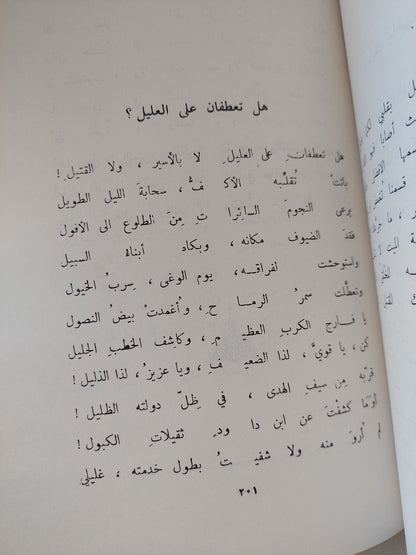 هل تعطفان على العليل ؟
هل تعطفانِ على العليلِ لا بالأسيرِ ، ولا القتيلِ !
باتتْ تُقلّبه الأكـ ـفُّ ، سحابةَ الليل الطويل
يرعى النجومَ السائرا تِ مِنَ الطلوع الى الأفول
فقدَ الضيوف مكانه ، وبكاه أبناءُ السبيل
واستوحشت لفراقه ، يوم الوغى ، سِربُ الخيول
وتعطّلت سمرُ الرماحِ ، وأُغمدتْ بيضُ النصول
يا فارج الكربِ العظيمِ ، وكاشف الخطبِ الجليل
كن ، يا قويَّ ، لذا الضعيفِ ، ويا عزيزُ ، لذا الذليل !
قرّبه مِن سيفِ الهدى ، في ظِلّ دولته الظليل !
أوَما كشفتَ عن ابن داودٍ ثقيلاتِ الكبول !
لم أُروَ منه ولا شفيتُ بطول خدمته ، غليلي
٢٠١